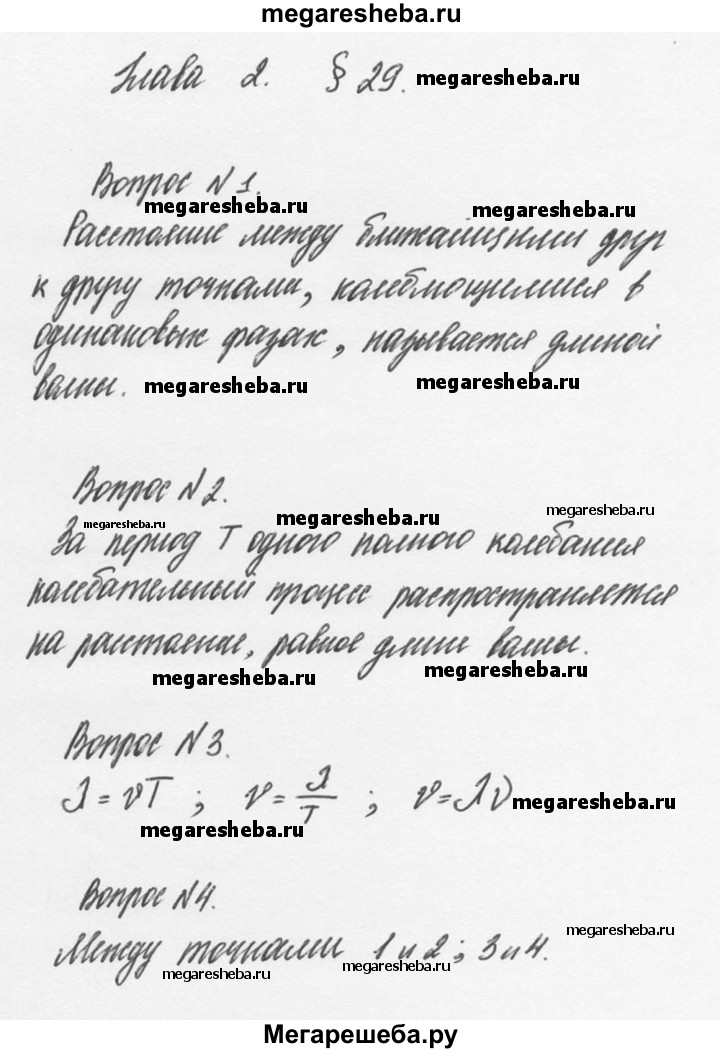 megaresheba.ru
Глава 2. § 29. megaresheba.ru
Вопрос N1.
megaresheba.ru megaresheba.ru
Расстояние между ближайшими друг
к другу точками, колеблющимися в
одинаковых фазах, называется длиной
волны. megaresheba.ru megaresheba.ru
Вопрос N2.
megaresheba.ru megaresheba.ru megaresheba.ru
За период T одного полного колебания
колебательный процесс распространяется
на расстояние, равное длине волны.
megaresheba.ru megaresheba.ru
Вопрос N3.
λ = vT ; v = λ/T ; v = λν megaresheba.ru
megaresheba.ru
Вопрос N4.
Между точками 1 и 2 ; 3 и 4. megaresheba.ru
megaresheba.ru megaresheba.ru
Мегарешеба.ру